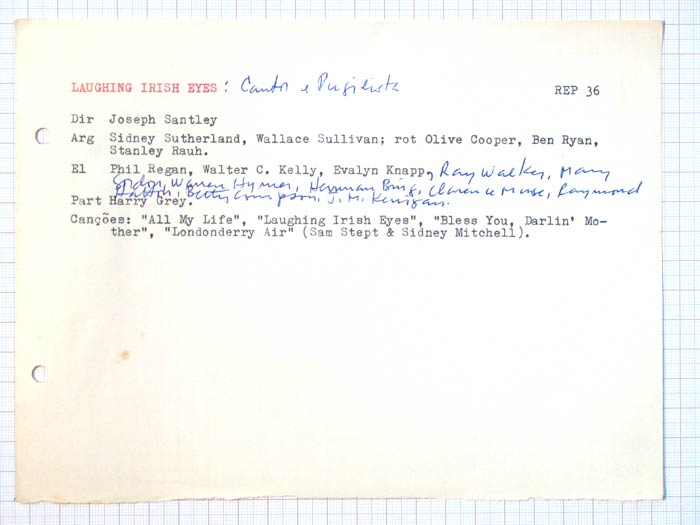 LAUGHING IRISH EYES : Cantor e Pugilista REP 36
Dir Joseph Santley
Arg Sidney Sutherland, Wallace Sullivan; rot Olive Cooper, Ben Ryan,
Stanley Rauh.
El Phil Regan, Walter C. Kelly, Evalyn Knapp, Ray Walker, Mary
Gordon, Warren Hymer, Herman Bing, Clarence Muse, Raymond
Hatton, Betty Compson, J. M. Kerrigan.
Part Harry Grey.
Canções: "All My Life", "Laughing Irish Eyes", "Bless You, Darlin' Mo-
ther", "Londonderry Air" (Sam Stept & Sidney Mitchell).